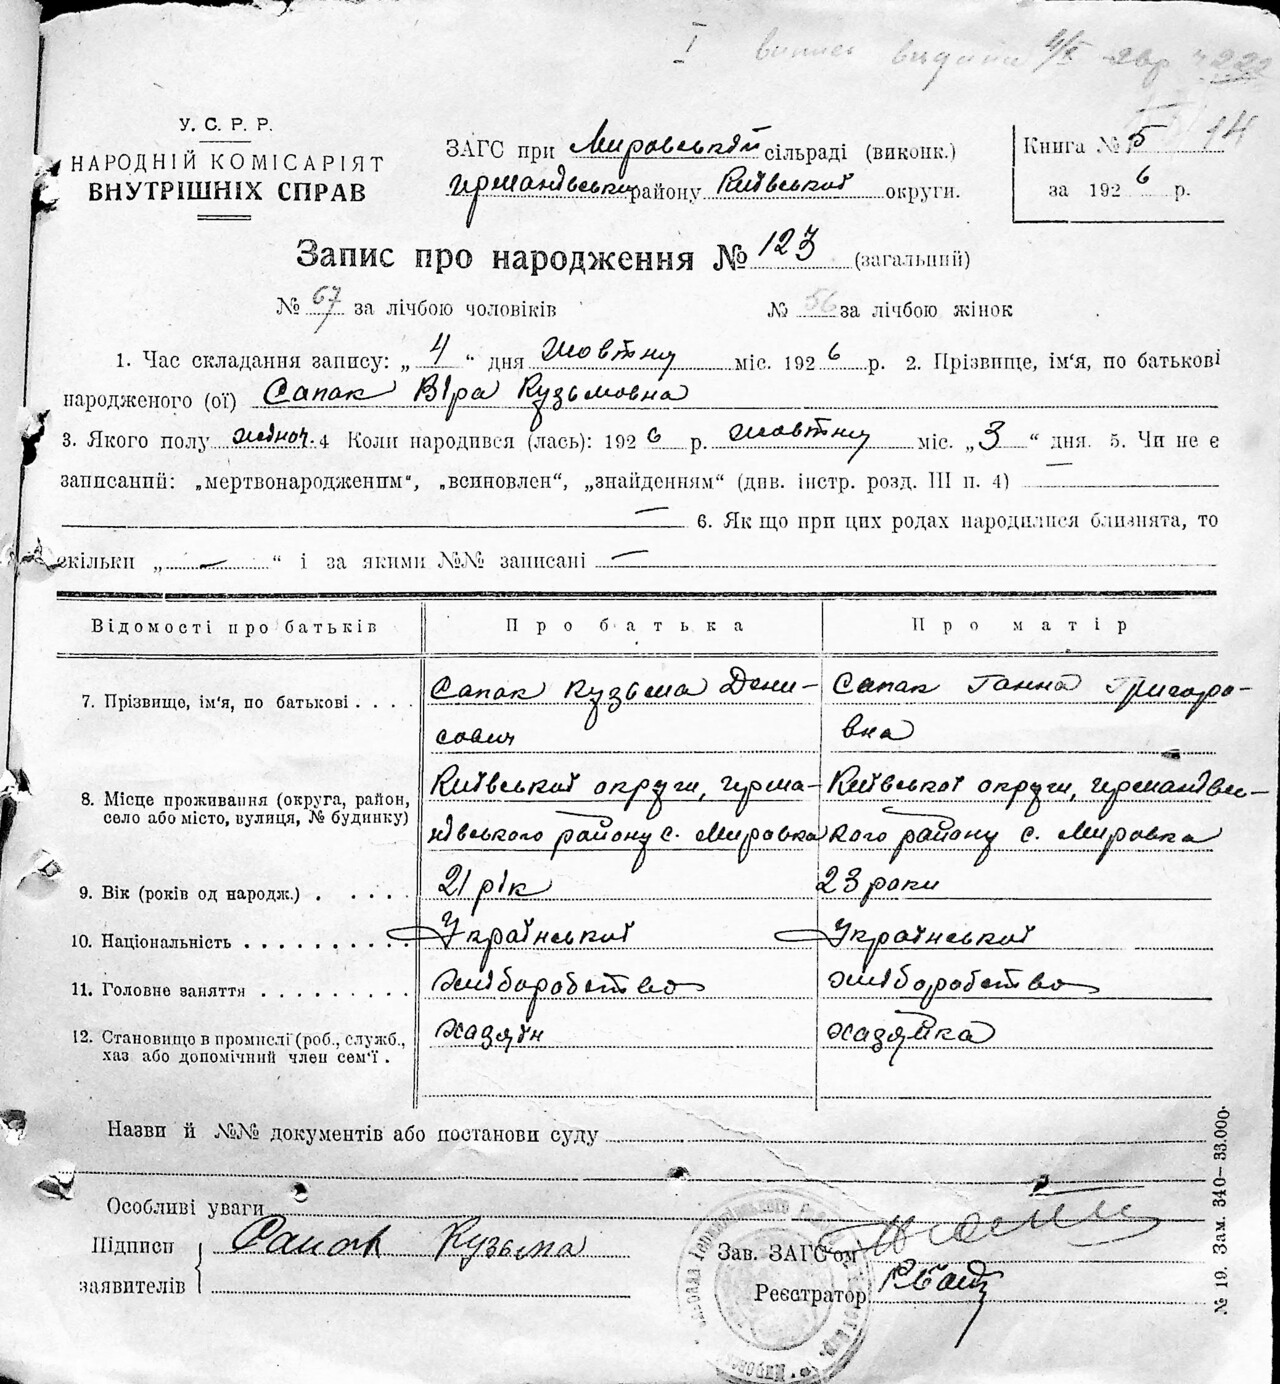 I випис видана
У. С. Р. Р.
НАРОДНІЙ КОМІСАРІЯТ
ВНУТРІШНІХ СПРАВ
ЗАГС при Мировський сільраді (виконк.)
Германівськи району Київської округи.
Книга № 5 14
за 1926 р.
Запис про народження № 123 (загальний)
№ 67 за лічбою чоловіків № 56 за лічбою жінок
1. Час складання запису: „ 4 “ дня жовтня міс. 1926 р. 2. Прізвище, ім‘я, по батькові
народженого (ої) Сапак Віра Кузьмовна
3. Якого полу жіноч. 4 Коли народився (лась): 1926 р. жовтня міс. „ 3 “ дня. 5. Чи не є
записаний: „мертвонародженим“, „всиновлен“, „знайденням“ (див. інстр. розд. III п. 4) —
— 6. Як що при цих родах народилися близнята, то
скільки „ — “ і за якими №№ записані —
Відомості про батьків Про батька Про матір
7. Прізвище, ім‘я, по батькові . . . . Сапак Кузьма Дени- Сапак Ганна Григоро-
сович вна
8. Місце проживання (округа, район, село або місто, вулиця, № будинку) Київської округи, Герма- Київської округи, Германівсь-
нівського району с. Мировка кого району с. Мировка
9. Вік (років од народж.) . . . . . 21 рік 23 роки
10. Національність . . . . . . . . . . Української Української
11. Головне заняття . . . . . . . . . . хліборобство хліборобство
12. Становище в промислі (роб., служб., хазяїн хазяйка
хаз або допомічний член сем‘ї .
Назви й №№ документів або постанови суду
Особливі уваги
Підписи
заявителів Сапак Кузьма
Зав. ЗАГС‘ом
Реєстратор
№ 19. Зам. 340—33.000.